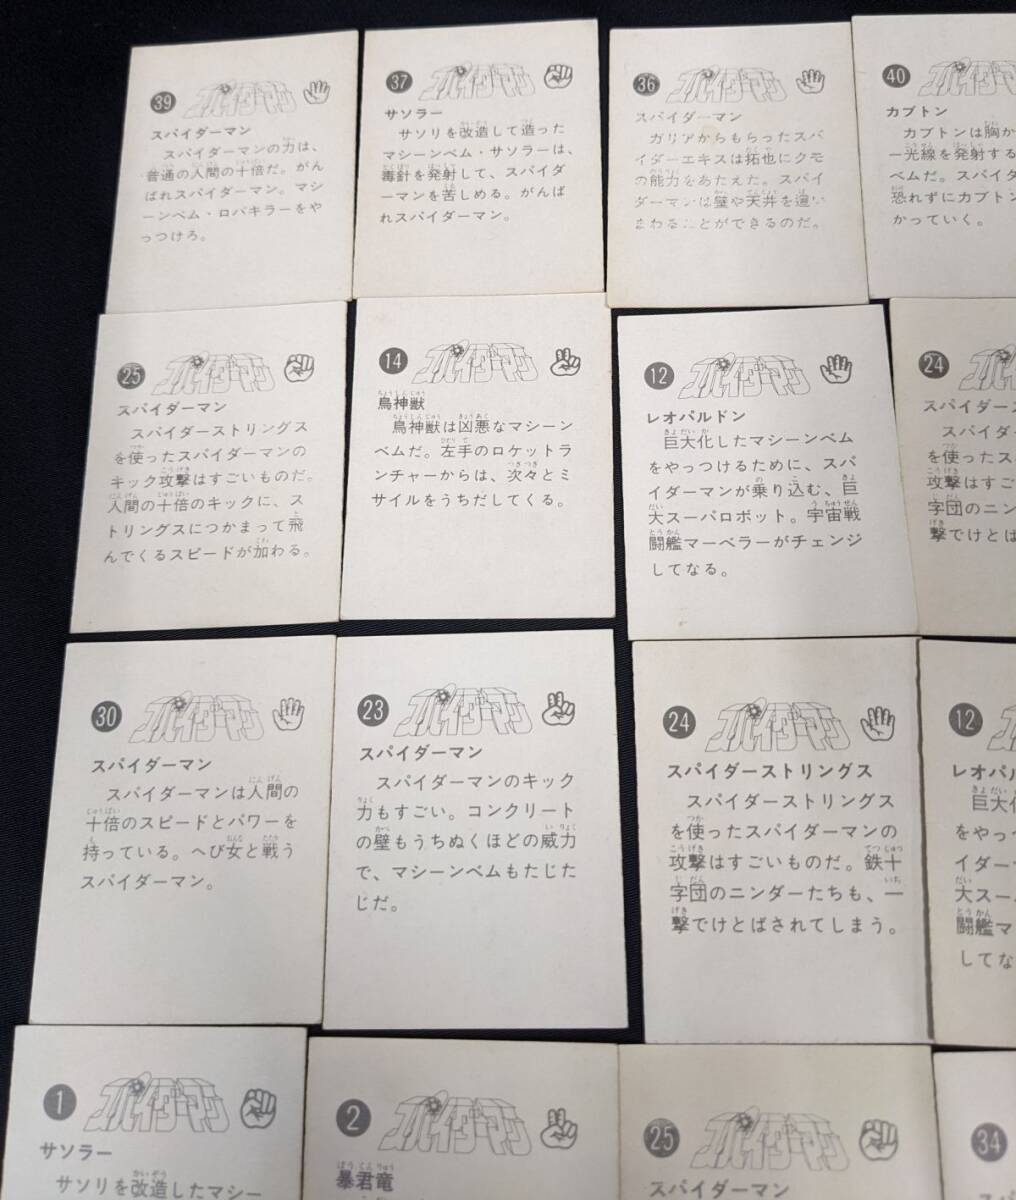 39 スパイダーマン
スパイダーマン
スパイダーマンの力は、
普通の人間の十倍だ。がん
ばれスパイダーマン。マシ
ーンベム・ロバキラーをや
っつけろ。
37 スパイダーマン
サソラー
サソリを改造して造った
マシーンベム・サソラーは、
毒針を発射して、スパイダ
ーマンを苦しめる。がんば
れスパイダーマン。
36 スパイダーマン
スパイダーマン
ガリアからもらったスパ
イダーエキスは拓也にクモ
の能力をあたえた。スパイ
ダーマンは壁や天井を這い
まわることができるのだ。
40
カブトン
カブトンは胸か
ー光線を発射する
ベムだ。スパイダ
恐れずにカブトン
かっていく。
25 スパイダーマン
スパイダーマン
スパイダーストリングス
を使ったスパイダーマンの
キック攻撃はすごいものだ。
人間の十倍のキックに、ス
トリングスにつかまって飛
んでくるスピードが加わる。
14 スパイダーマン
鳥神獣
鳥神獣は凶悪なマシーン
ベムだ。左手のロケットラ
ンチャーからは、次々とミ
サイルをうちだしてくる。
12 スパイダーマン
レオパルドン
巨大化したマシーンベム
をやっつけるために、スパ
イダーマンが乗り込む、巨
大スーパロボット。宇宙戦
闘艦マーベラーがチェンジ
してなる。
24
スパイダース
スパイダー
を使った
攻撃はすご
字団のニン
撃でけとば
30 スパイダーマン
スパイダーマン
スパイダーマンは人間の
十倍のスピードとパワーを
持っている。へび女と戦う
スパイダーマン。
23 スパイダーマン
スパイダーマン
スパイダーマンのキック
力もすごい。コンクリート
の壁もうちぬくほどの威力
で、マシーンベムもたじた
じだ。
24 スパイダーマン
スパイダーストリングス
スパイダーストリングス
を使ったスパイダーマンの
攻撃はすごいものだ。鉄十
字団のニンダーたちも、一
撃でけとばされてしまう。
12
レオパル
巨大化
をやっ
イダー
大スー
闘艦マ
してな
1 スパイダーマン
サソラー
サソリを改造したマシー
2 スパイダーマン
暴君竜
25 スパイダーマン
スパイダーマン
34